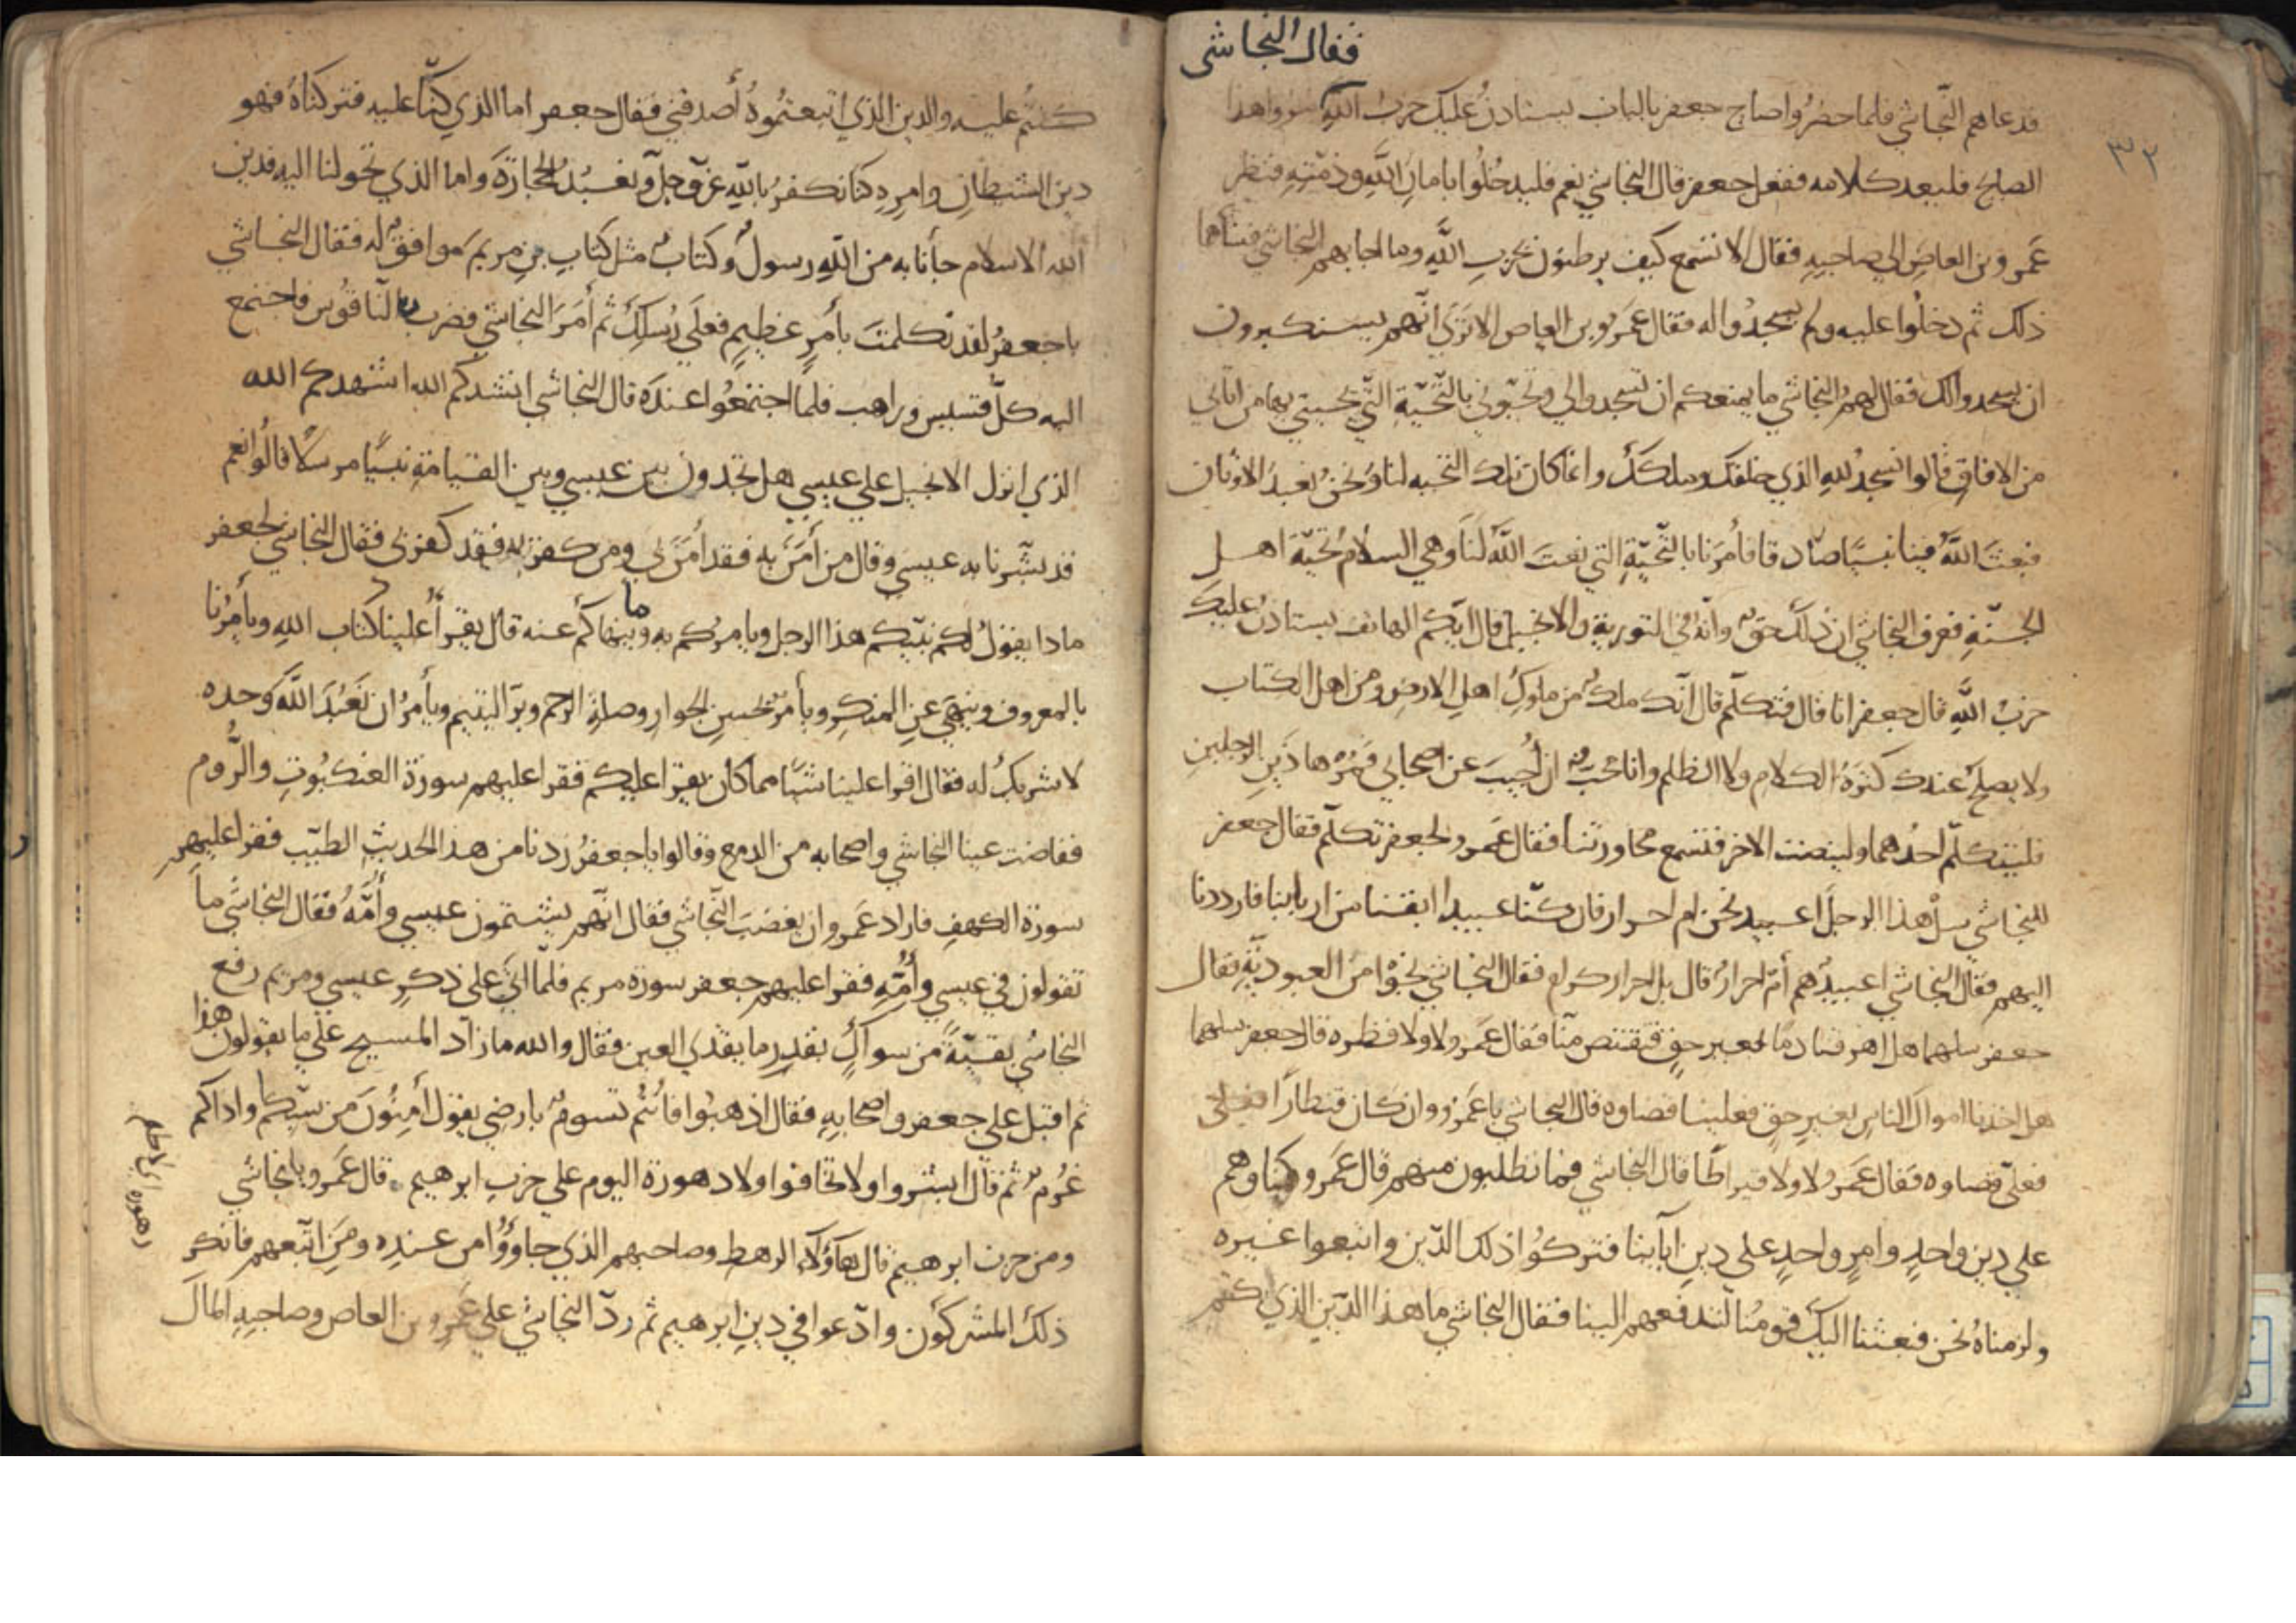 فقال النجاشى
٣٢
فدعاهم النّجاشي فلما حضرُوا صاح جعفر بالباب يستاذنُ عليك حزبُ اللّهِ مروا هذا
الصايح فليعد كلامه ففعل جعفر قال النجاشي نعم فليدخلُوا بامانِ اللّهِ وذمّتِهِ فنظر
عَمرو بن العاصِ الي صاحبِهِ فقال الا تسمع كيف يرطنون بحزبِ اللّهِ وما اجابهم النجاشي فساهما
ذلك ثم دخلُوا عليه ولم يسجدُوا له فقال عمَرُو بن العاص الا ترَى انّهم يستكبرون
ان يسجدوا لك فقال لهمُ النجاشي ما يمنعكم ان تسجدوا لي وتحيّوني بالتّحيّةِ التّي يحييني بها من اتاني
من الافاقِ قالوا نسجدُ للهِ الذي خلقك وملكك وانما كان تلك التحيه لنا ونحن نعبدُ الاوثان
فبعثَ اللّهُ فينا نبيّا صادقا فأمرَنا بالتّحيّةِ التي نعتَ اللّهُ لَنا وهي السلامُ تحيّة اهل
الجنّةِ فعرف النجاشي ان ذلك حق وانّه في التوريةِ والانجيل قال ايّكم الهاتف يستاذن عليك
حزبُ اللّهِ قال جعفر انا قال فتكلّم قال انّك ملك من ملوكِ اهلِ الارضِ ومن اهل الكتاب
ولا يصلح عندك كثرةُ الكلامِ ولا الظلم وانا احبّ ان أجيبَ عن اصحابي فمُرْ هاذينِ الرجلينِ
فليتكلّم احدُهما ولينصت الاخر فتسمع محاورتنا فقال عَمرو لجعفر تكلّم فقال جعفر
للنجاشي سلْ هذا الرجل اعبيد نحن ام احرار فان كنّا عبيدا ابقنا من اربابنا فارددنا
اليهم فقال النجاشي اعبيدٌ هم أم احرارٌ قال بل احرار كرام فقال النجاشي نجَوْا من العبوديّةِ فقال
جعفر سلهما هل اهرقنا دمًا بغير حقٍ فيقتص منّا فقال عَمرو لا ولا قطره قال جعفر سلهما
هل اخذنا اموال الناسِ بغيرِ حقٍ فعلينا قضاوه قال النجاشي يا عَمرُو وان كان قنطارًا فعلى
فعلىّ قضاوه فقال عَمرُو لا ولا قيراطًا قال النجاشي فما تطلبون منهم قال عَمرو كنا وهم
علي دينٍ واحدٍ وامرٍ واحدٍ علي دينِ آبآينا فتركُوا ذلك الدّين واتبعوا غيره
ولزمناهُ نحن فبعثنا اليك قومُنا لتدفعهم الينا فقال النجاشي ما هذا الدّين الذي كنتم
كنتُم عليه والدين الذي اتبعتمُوهُ أصدقني فقال جعفر اما الذي كنّا عليه فتركناهُ فهو
دين الشيطانِ وامرِهِ كنا نكفرُ باللّهِ عزّ وجلّ ونعبُدُ الحجارَةَ واما الذي تحولنا اليه فدين
الله الاسلام جأنا به من اللّهِ رسولٌ وكتابٌ مثل كتابِ بنِ مريمَ موافقٌ له فقال النجاشي
يا جعفرُ لقد تكلمتَ بأمرٍ عظيمٍ فعلَي رُسلِكَ ثم أمَرَ النجاشي فضرب بالنّاقوس فاجتمع
اليه كلّ قسيس وراهب فلما اجتمعُوا عندَه قال النجاشي انشدكم الله اشهدكم الله
الذي انزل الانجيل علي عيسي هل تجدون بين عيسي وبين القيامةِ نبيّا مرسلًا قالُوا نعم
قد بشّرنا به عيسي وقال من أمَنَ به فقد أمَنَ بي ومن كفر به فقد كفر بي فقال النجاشي لجعفر
ماذا يقولُ لكم نبيّكم هذا الرجل ويامركم به وما ينهاكم عنه قال يقرأ علينا كتاب اللهِ ويأمرُنا
بالمعروف وينهَي عنِ المنكرِ ويأمر بحسنِ الجوارِ وصلةِ الرحم وبرّ اليتيم ويأمرُ ان نَعبُدَ اللّهَ وحده
لا شريكَ له فقال اقرا علينا شيًا مما كان يقرا عليكم فقرا عليهم سورة العنكبوتِ والرُّوم
ففاضت عينا النجاشي واصحابه من الدمع وقالوا يا جعفرُ زدنا من هذا الحديثِ الطيّب فقرا عليهم
سورة الكهفِ فاراد عَمرو ان يغضبَ النّجاشي فقال انّهم يشتمون عيسي وأُمَّهُ فقال النجاشي ما
تقولون في عيسي وأُمِّهِ فقرا عليهم جعفر سورة مريم فلمّا اتَى علي ذكرِ عيسي ومريم رفع
النجاشي بقيّةً من سواكٍ بقدرِ ما يقذي العين فقال والله ما زاد المسيح علي ما يقولون هذا
ثم اقبل علي جعفر واصحابِهِ فقال اذهبُوا فانتُم سيوم بارضي يقول أمِنُونَ من سبّكم واذاكم
غُرِم ثم قال ابشروا ولا تخافوا ولا دهورة اليوم علي حزبِ ابرهيم قال عَمرو يا نجاشي
ومن حزب ابرهيم قال هآؤلآءِ الرهط وصاحبهم الذي جاوؤُا من عندِه ومَن اتّبعهم فانكر
ذلك المشركون وادّعوا في دينِ ابرهيم ثم ردّ النجاشي علي عَمرِو بن العاص وصاحبِهِ المالَ